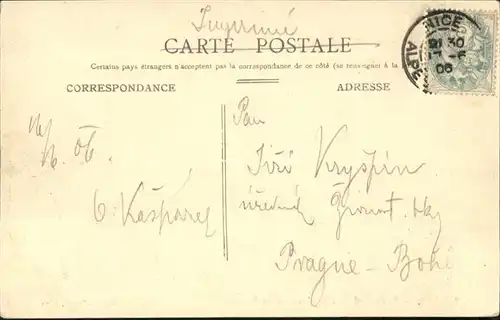 Imprimé
CARTE POSTALE
Certains pays étrangers n'acceptent pas la correspondance de ce côté (se renseigner à la
CORRESPONDANCE
ADRESSE
NICE
30
06
ALPE
Pan
Jiří Kryšpín
úředník Živnost.
Prague - Bohé
06.
Kašpárek